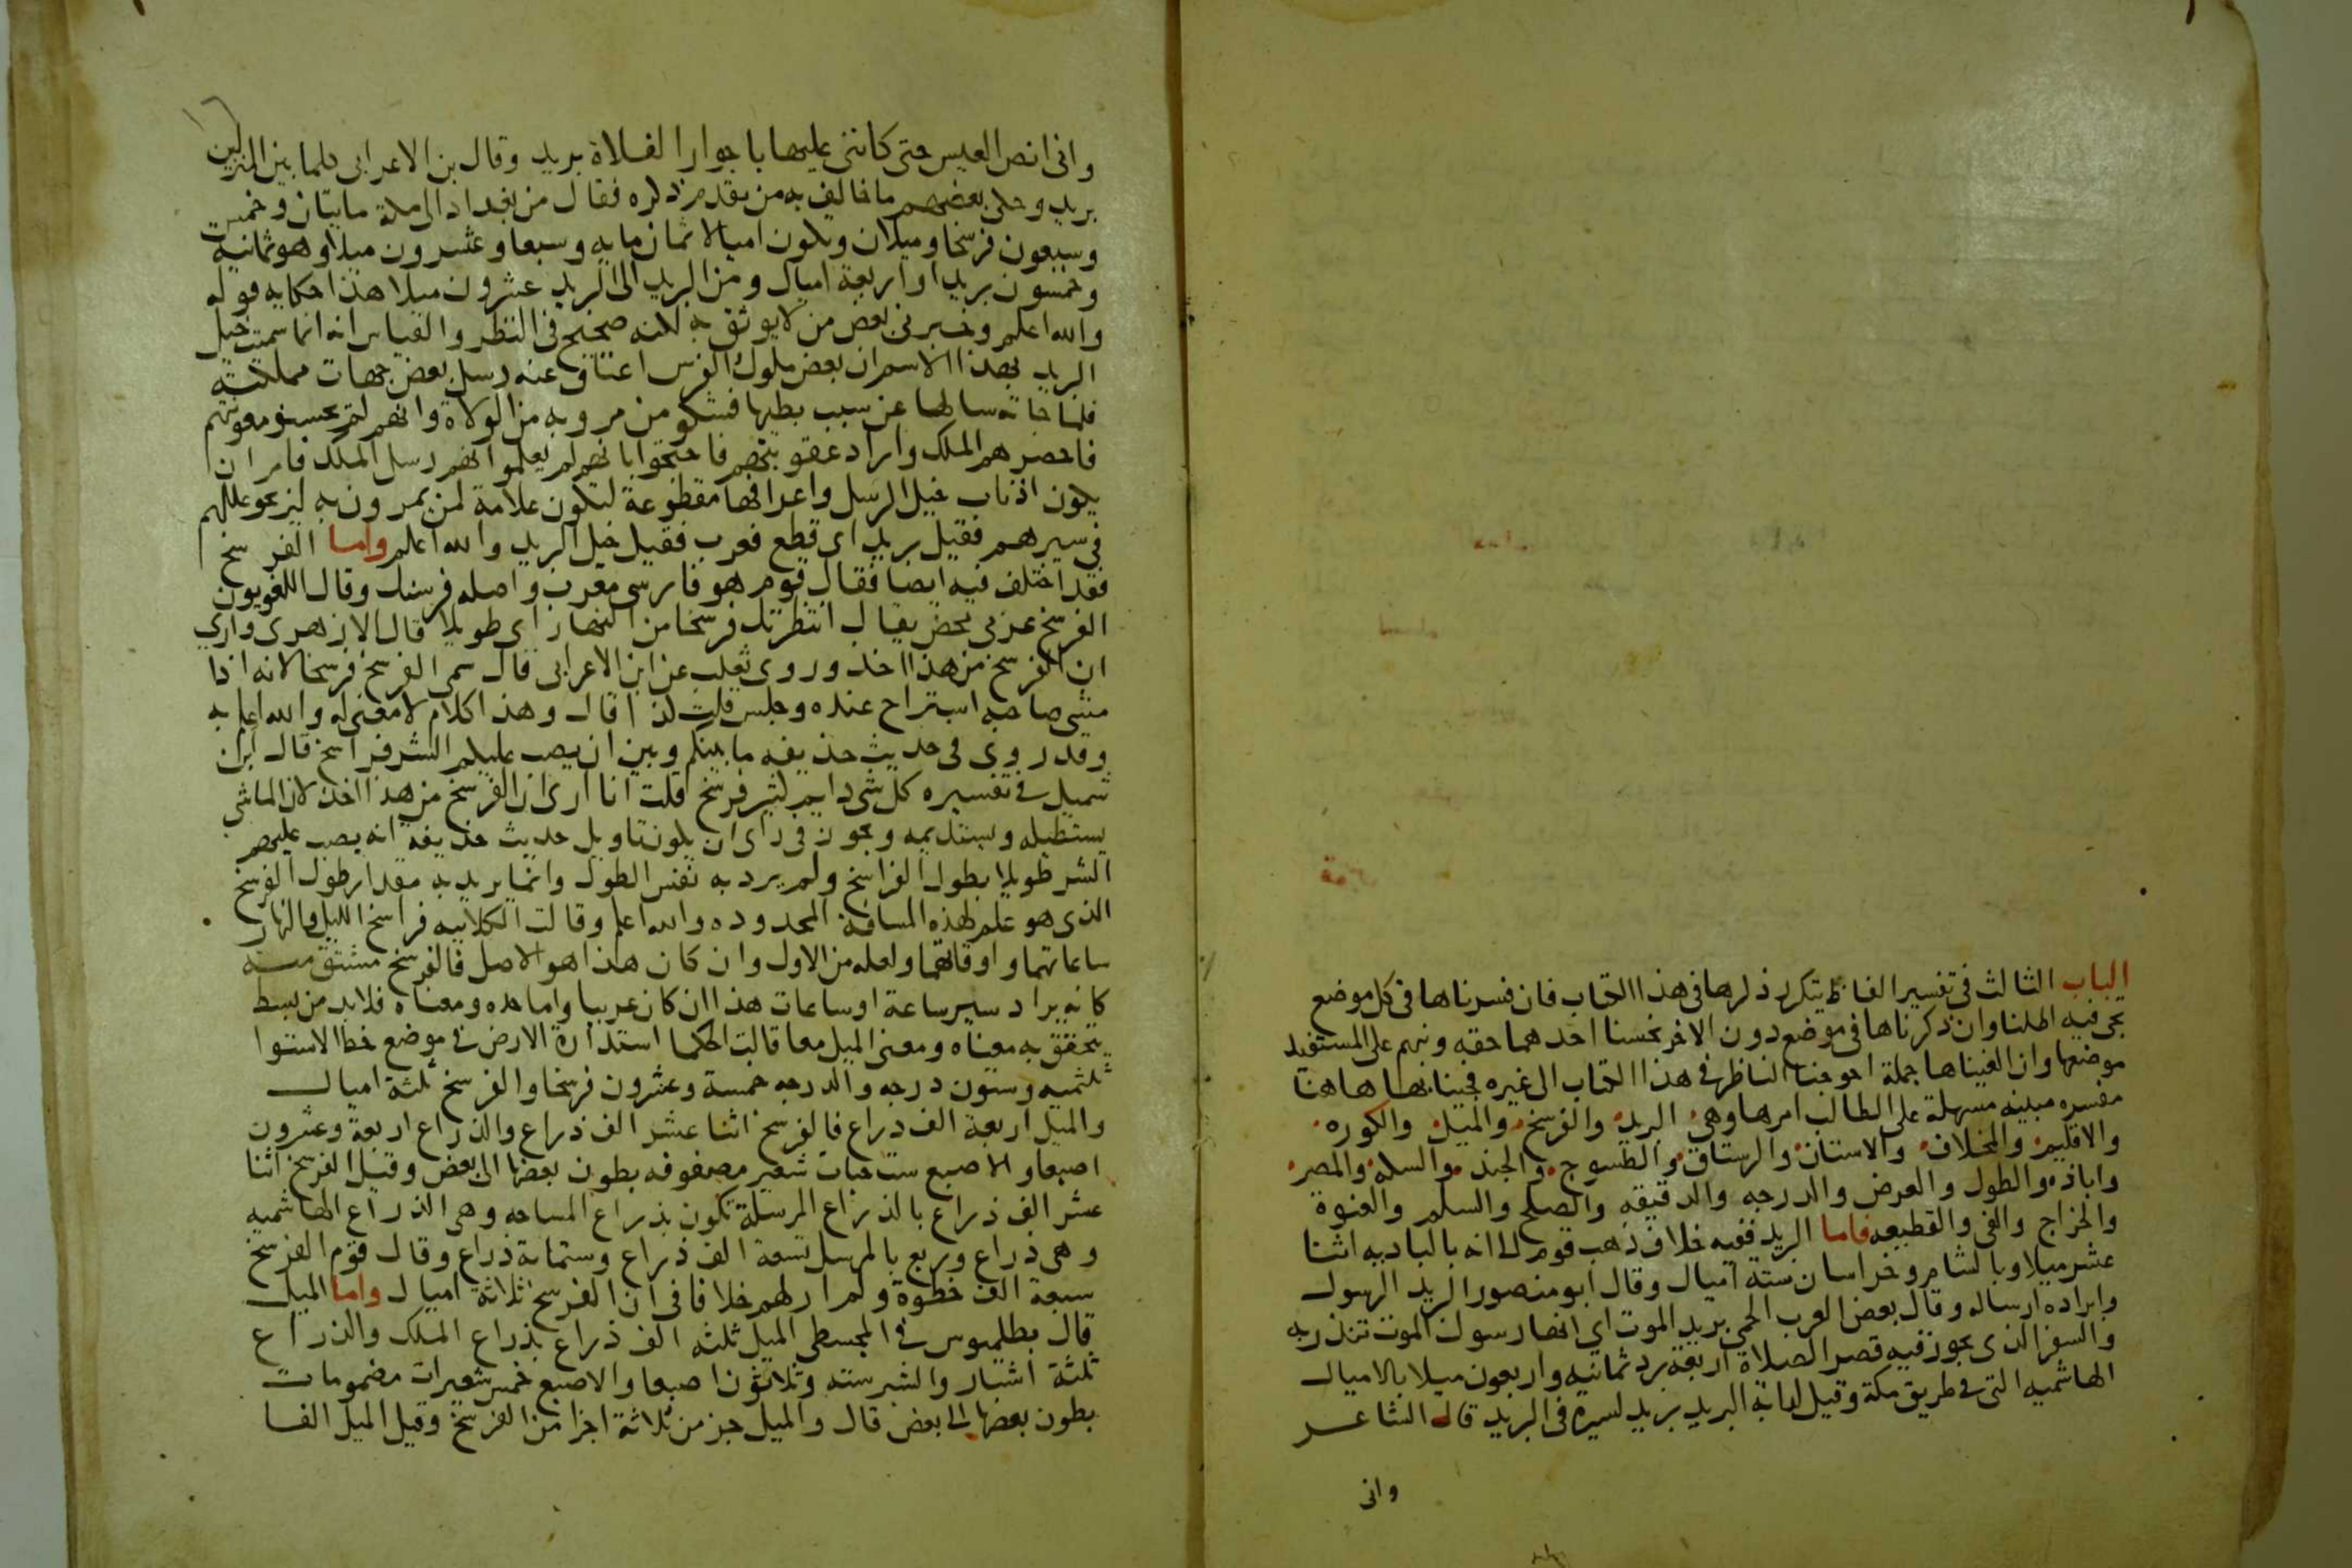 الباب الثالث في تفسير الفاظ يتكرر ذكرها في هذا الكتاب فان فسرناها في كل موضع
تجي فيه اطلنا وان ذكرناها في موضع دون الاخر بخسنا احدهما حقه ونبهم على المستفيد
موضعها وان الغيناها جملة احوجنا الناظر في هذا الكتاب الى غيره فجينا بها هاهنا
مفسره مبينه مسهلة على الطالب امرها وهي البريد والفرسخ والميل والكوره
والاقليم والمخلاف والاستان والرستاق والطسوج والجند والسكه والمصر
واباذه والطول والعرض والدرجه والدقيقه والصلح والسلم والعنوة
والخراج والفى والقطيعه فاما البريد ففيه خلاف ذهب قوم الى انه بالباديه اثنا
عشر ميلا وبالشام وخراسان ستة اميال وقال ابو منصور البريد الرسول
وابراده ارساله وقال بعض العرب الحمى بريد الموت اي انها رسول الموت تنذر به
والسفر الذى يجوز فيه قصر الصلاة اربعة برد ثمانيه واربعون ميلا بالاميال
الهاشميه التى في طريق مكة وقيل لدابة البريد بريد لسيره فى البريد قال الشاعر
وانى
وانى انص العيس حتى كاننى عليها باجواز الفلاة بريد وقال بن الاعرابى كلما بين المنزلين
بريد وحكى بعضهم ما خالف به من تقدم ذكره فقال من بغداد الى مكة مايتان وخمس
وسبعون فرسخا وميلان ويكون اميالا ثمان مايه وسبعا وعشرون ميلا وهو ثمانية
وخمسون بريدا واربعة اميال ومن البريد الى البريد عشرون ميلا هذا حكايه قوله
والله اعلم وخبرنى بعض من لا يوثق به لكنه صحيح فى النظر والقياس انه انما سميت خيل
البريد بهذا الاسم ان بعض ملوك الفرس اعتاق عنه رسل بعض جهات مملكته
فلما جاته سالها عن سبب بطيها فشكو من مروبه من الولاة وانهم لم يحسنو معونتهم
فاحضرهم الملك واراد عقوبتهم فاحتجوا بانهم لم يعلموا انهم رسل الملك فامر ان
يكون اذناب خيل الرسل واعرافها مقطوعة لتكون علامة لمن يمرون به ليزيحو عللهم
فى سيرهم فقيل بريد اى قطع فعرب فقيل خيل البريد والله اعلم واما الفرسخ
فقد اختلف فيه ايضا فقال قوم هو فارسى معرب واصله فرسنك وقال اللغويون
الفرسخ عربى محض يقال انتظرتك فرسخا من النهار اى طويلا قال الازهرى وارى
ان الفرسخ من هذا اخذ وروى ثعلب عن ابن الاعرابى قال سمى الفرسخ فرسخا لانه اذا
مشى صاحبه استراح عنده وجلس قلت كذا قال وهذا كلام لا معنى له والله اعلم به
وقد روى فى حديث حذيفه ما بينكم وبين ان يصب عليكم الشر فراسخ قال ابن
شميل في تفسيره كل شى دايم كثير فرسخ قلت انا ارى ان الفرسخ من هذا اخذ لان الماشى
يستطيله ويستديمه ويجوز فى راى ان يكون تاويل حديث حذيفة انه يصب عليهم
الشر طويلا بطول الفراسخ ولم يرد به نفس الطول وانما يريد به مقدار طول الفرسخ
الذى هو علم لهذه المسافة المحدوده والله اعلم وقالت الكلابيه فراسخ الليل والنهار
ساعاتهما واوقاتهما ولعله من الاول وان كان هذا هو الاصل فالفرسخ مشتق منه
كانه يراد سير ساعة او ساعات هذا ان كان عربيا واما حده ومعناه فلابد من بسط
يتحقق به معناه ومعنى الميل معا قالت الحكما استدارة الارض في موضع خط الاستوا
ثلثميه وستون درجه والدرجه خمسة وعشرون فرسخا والفرسخ ثلثة اميال
والميل اربعة الف دراع فالفرسخ اثنا عشر الف ذراع والذراع اربعة وعشرون
اصبعا والاصبع ست حبات شعير مصفوفه بطون بعضها الى بعض وقيل الفرسخ اثنا
عشر الف ذراع بالذراع المرسلة تكون بذراع المساحه وهى الذراع الهاشميه
وهى ذراع وربع بالمرسل تسعة الف ذراع وستماية ذراع وقال قوم الفرسخ
سبعة الف خطوة ولم ار لهم خلافا فى ان الفرسخ ثلاثة اميال واما الميل
قال بطلميوس في المجسطى الميل ثلثه الف ذراع بذراع الملك والذراع
ثلثة اشبار والشبر سته وثلاثون اصبعا والاصبع خمس شعيرات مضمومات
بطون بعضها الى بعض قال والميل جز من ثلاثة اجزا من الفرسخ وقيل الميل الفا